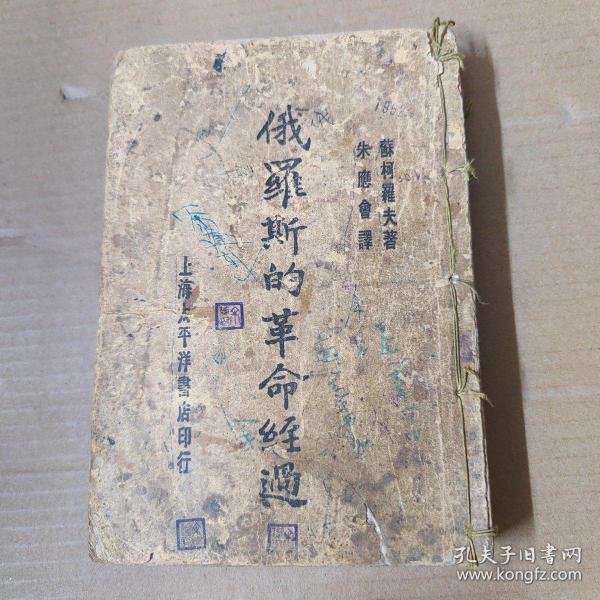 蘇柯羅夫著
朱應會譯
俄羅斯的革命經過
上海太平洋書店印行
孔夫子旧书网
www.kongfz.com